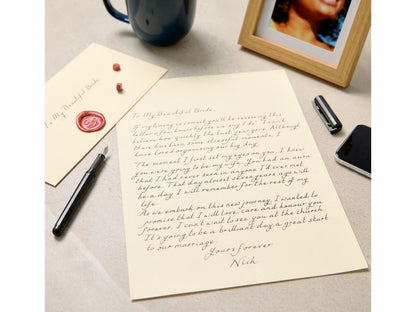 To My Beautiful Bride
To My Beautiful Bride,
If my timing is correct you'll be receiving this
letter a few hours before we say I do. I can't
believe how quickly the last year gone. Although
there has been some stressful moments, I
have loved organising our big day.
The moment I first set my eyes on you, I knew
you were going to be my wife. You had an aura
that I had never seen in anyone I'd ever met
before. That day almost three years ago will
be a day I will remember for the rest of my
life.
As we embark on this new journey, I wanted to
promise that I will love, care and honour you
forever. I can't wait to see you at the church.
It's going to be a brilliant day, a great start
to our marriage.
Yours forever
Nick